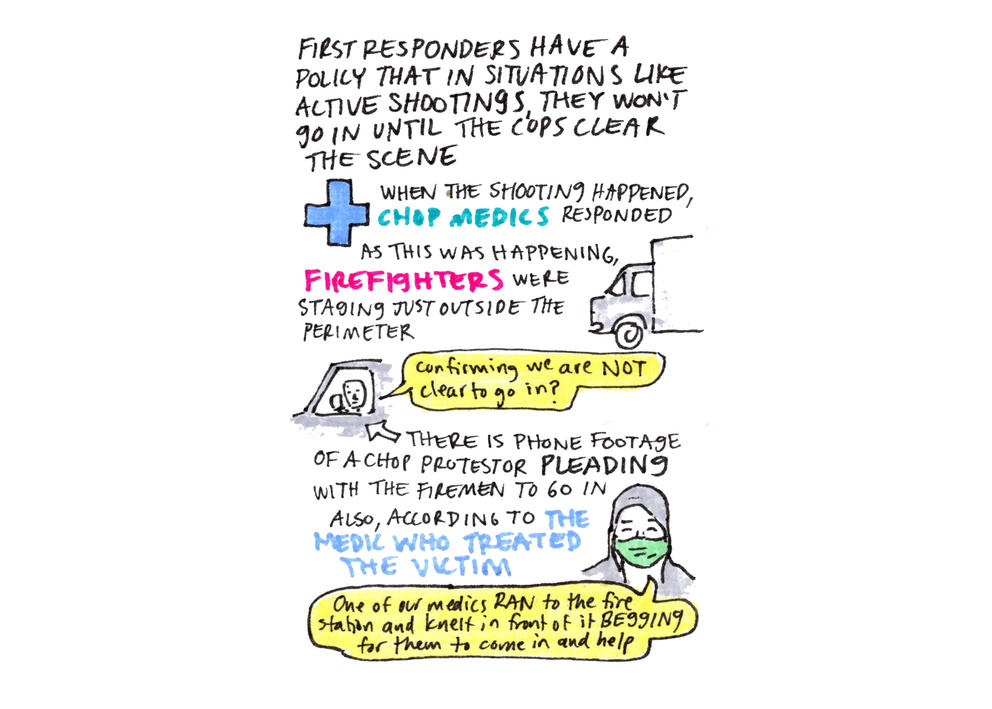 FIRST RESPONDERS HAVE A
POLICY THAT IN SITUATIONS LIKE
ACTIVE SHOOTINGS, THEY WON'T
GO IN UNTIL THE COPS CLEAR
THE SCENE
WHEN THE SHOOTING HAPPENED,
CHOP MEDICS RESPONDED
AS THIS WAS HAPPENING,
FIREFIGHTERS WERE
STAGING JUST OUTSIDE THE
PERIMETER
Confirming we are NOT
clear to go in?
THERE IS PHONE FOOTAGE
OF A CHOP PROTESTOR PLEADING
WITH THE FIREMEN TO GO IN
ALSO, ACCORDING TO THE
MEDIC WHO TREATED
THE VICTIM
One of our medics RAN to the fire
station and knelt in front of it BEGGING
for them to come in and help